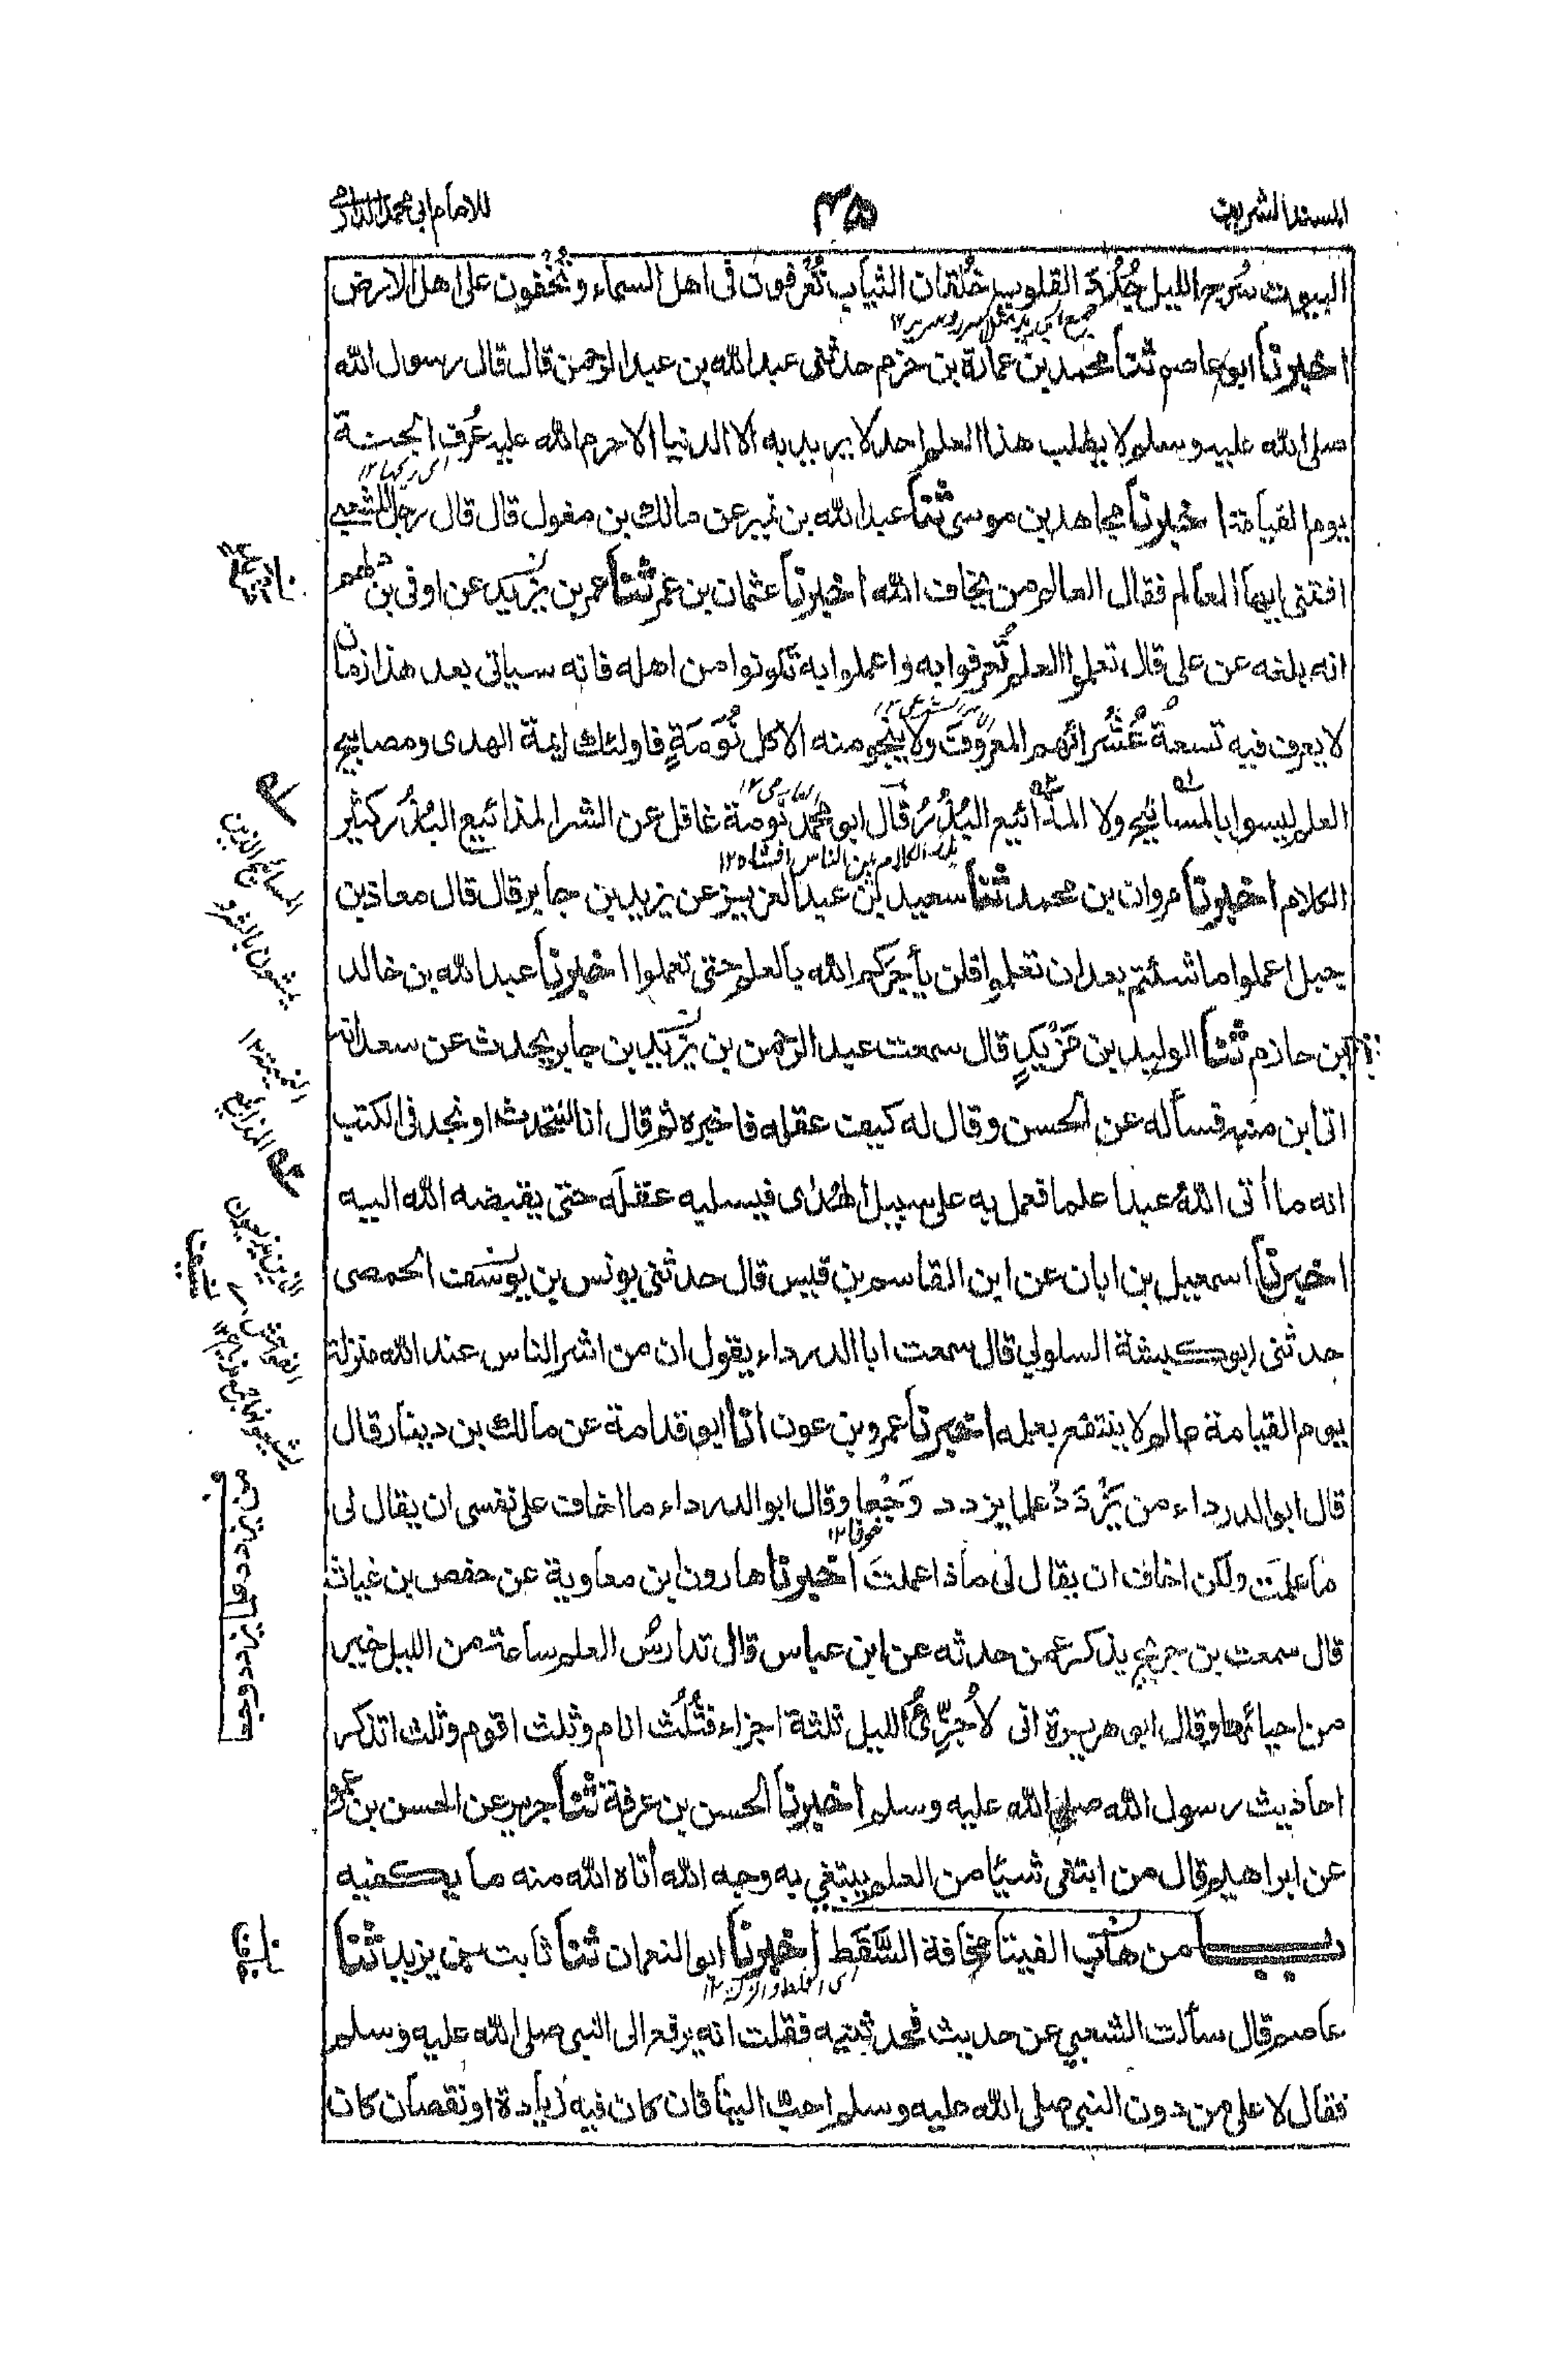 المسند الشريف
٤٥
للامام ابي محمد الدارمي
البيوت سُرج الليل جُدُدَ القلوب خُلقان الثياب تُعرفون فى اهل السماء وتُخفون على اهل الارض
اخبرنا ابو عاصم ثنا محمد بن عمارة بن حزم حدثنى عبد الله بن عبد الرحمن قال قال رسول الله
صلى الله عليه وسلم لا يطلب هذا العلم احد لا يريد به الا الدنيا الا حرم الله عليه عُرف الجنة
اى ريحها ١٢
يوم القيامة اخبرنا مجاهد بن موسى ثنا عبد الله بن نمير عن مالك بن مغول قال قال رجل للشعبي
افتنى ايها العالم فقال العالم من يخاف الله اخبرنا عثمان بن عمر ثنا عمر بن يزيد عن اوفى بن دلهم
انه بلغه عن على قال تعلموا العلم تُعرفوا به واعملوا به تكونوا من اهله فانه سياتى بعد هذا زمان
لا يعرف فيه تسعةُ عُشُرائهم المعروفَ ولا ينجو منه الا كل نُوَمَةٍ فاولئك ايمة الهدى ومصابيح
العلم ليسوا بالمسائيح ولا المذائيع البُذُرُ قال ابو محمد نومة غافل عن الشر المذائيع البُذُر كثير
الكلام اخبرنا مروان بن محمد ثنا سعيد بن عبد العزيز عن يزيد بن جابر قال قال معاذ بن
جبل اعملوا ما شئتم بعد ان تعلموا فلن يأجركم الله بالعلم حتى تعملوا اخبرنا عبد الله بن خالد
بن حازم ثنا الوليد بن مَزْيَدٍ قال سمعت عبد الرحمن بن يَزْيَد بن جابر يحدث عن سعد انه
اتى ابن منبه فسأله عن الحسن وقال له كيف عقله فاخبره ثم قال انا لنتحدث او نجد فى الكتب
انه ما أتى اللهُ عبدا علما فعمل به على سبيل الهُدٰى فيسلبه عقلَه حتى يقبضه الله اليه
اخبرنا اسمعيل بن ابان عن ابن القاسم بن قيس قال حدثنى يونس بن يوسف الحمصى
حدثنى ابو كبشة السلولي قال سمعت ابا الدرداء يقول ان من اشر الناس عند الله منزلة
يوم القيامة عالم لا ينتفع بعلمه اخبرنا عمرو بن عون انا ابو قدامة عن مالك بن دينار قال
قال ابو الدرداء من يَزْدَدْ علما يزدد وَجْعا وقال ابو الدرداء ما اخاف على نفسى ان يقال لى
خوفا ١٢
ما علمتَ ولكن اخاف ان يقال لى ماذا عملتَ اخبرنا هارون ابن معاوية عن حفص بن غياث
قال سمعت بن جريج يذكر عمن حدثه عن ابن عباس قال تدارسُ العلم ساعة من الليل خير
من احيائها وقال ابو هريرة انى لاُجزّئُ الليل ثلثة اجزاء فثُلُث انام وثلث اقوم وثلث اتذكر
احاذيث رسول الله صلى الله عليه وسلم اخبرنا الحسن بن عرفة ثنا جرير عن الحسن بن عمرو
عن ابراهيم قال من ابتغى شيئا من العلم يبتغي به وجه الله أتاه الله منه ما يكفيه
باب من هاب الفيتا مخافة السَّقَط اخبرنا ابو النعمان ثنا ثابت بن يزيد ثنا
اى الغلط والزلة ١٢
عاصم قال سألت الشعبي عن حديث فحدثنيه فقلت انه يرفع الى النبى صلى الله عليه وسلم
فقال لا على من دون النبى صلى الله عليه وسلم احبّ الينا فان كان فيه زيادة او نقصان كان
المسائيح الذين
يمشون بالشر و
النميمة ١٢
المذائيع
الذين يذيعون
الفواحش